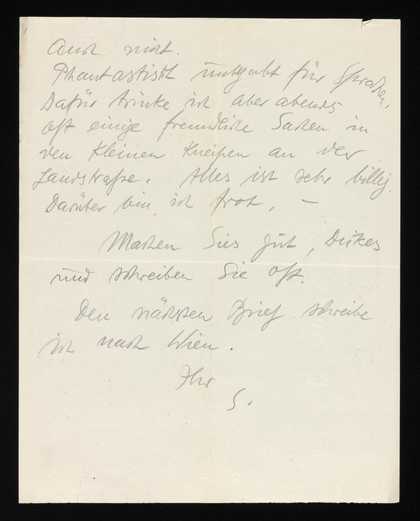 Auch nicht.
Phantastisch unbegabt für Sprachen.
Dafür trinke ich aber abends
oft einige freundliche Sachen in
den kleinen Kneipen an der
Landstraße. Alles ist sehr billig.
Darüber bin ich froh. —
Machen Sies gut, Dickes
und schreiben Sie oft.
Den nächsten Brief schreibe
ich nach Wien.
Ihr
S.